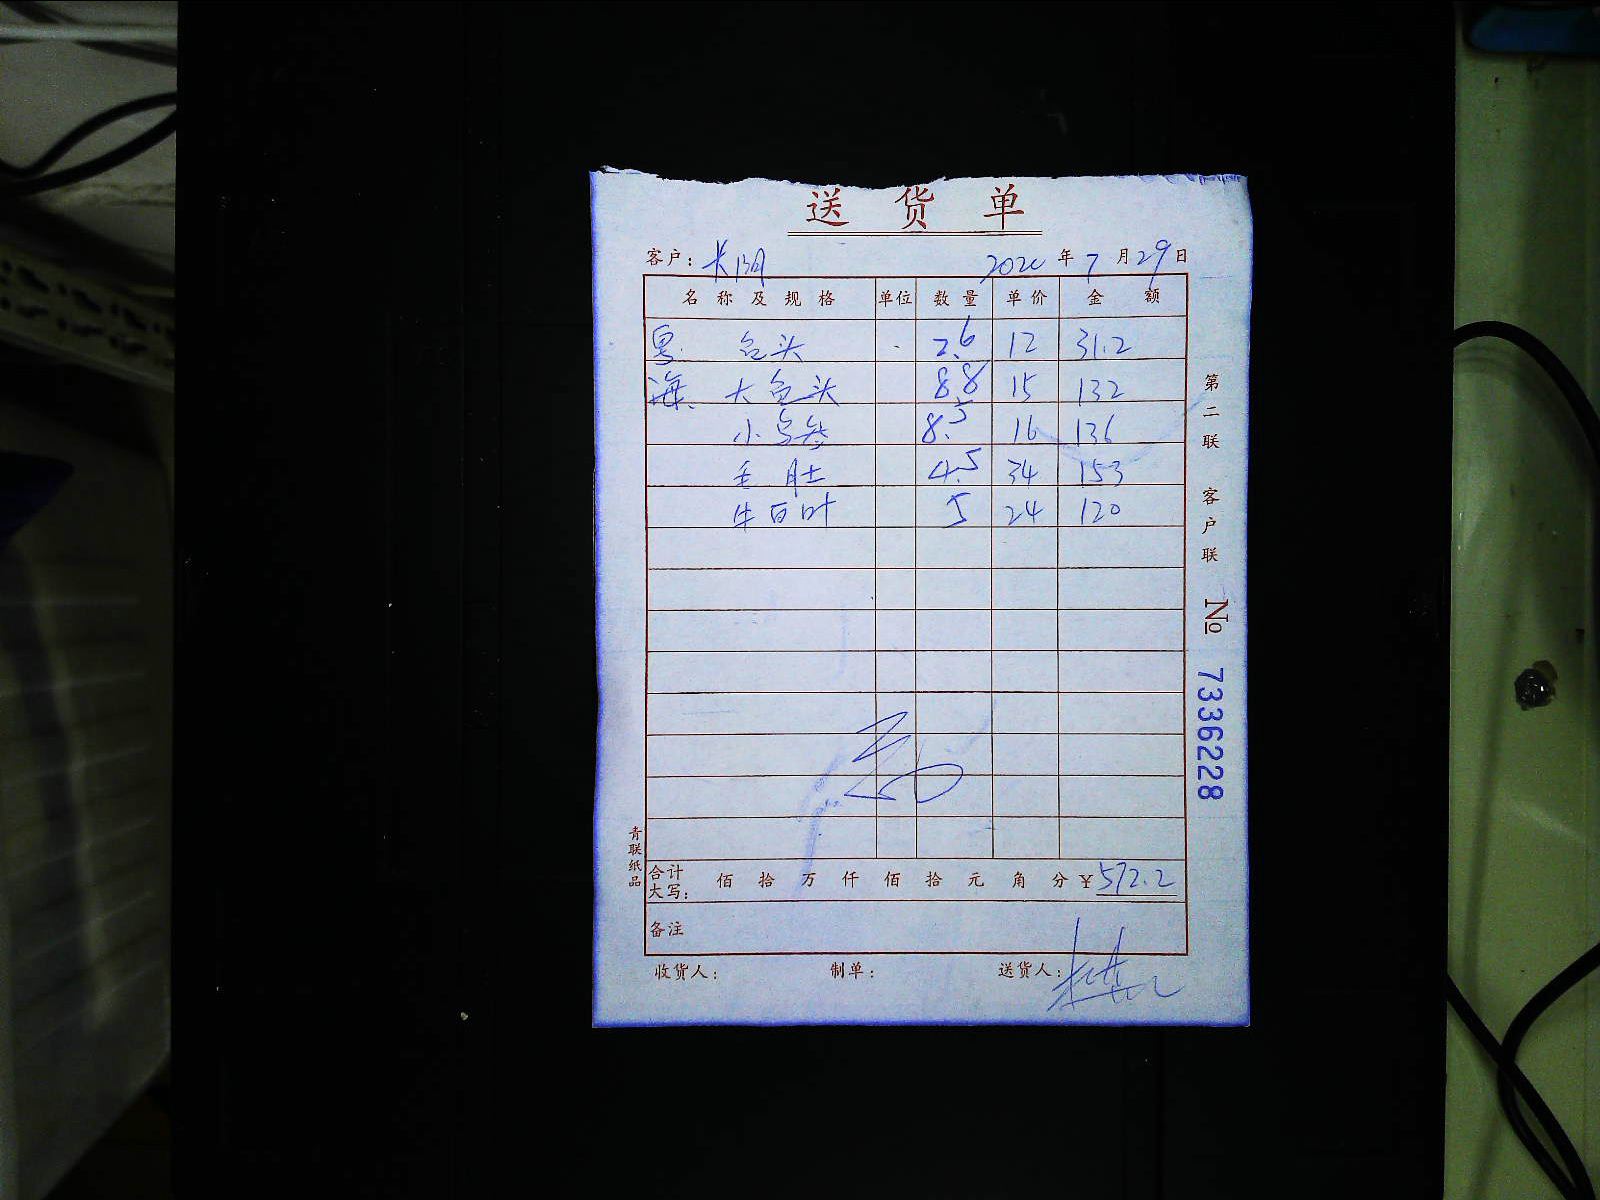 送货单
客户： 2020年7月29日
名称及规格 单位 数量 单价 金额
粤 鱼头 2.6 12 31.2
海、 大鱼头 8.8 15 132
小乌参 8.5 16 136
毛肚 4.5 34 153
牛百叶 5 24 120
合计大写： 佰 拾 万 仟 佰 拾 元 角 分 ¥572.2
备注
收货人： 制单： 送货人：
第二联 客户联 № 7336228
青联纸品